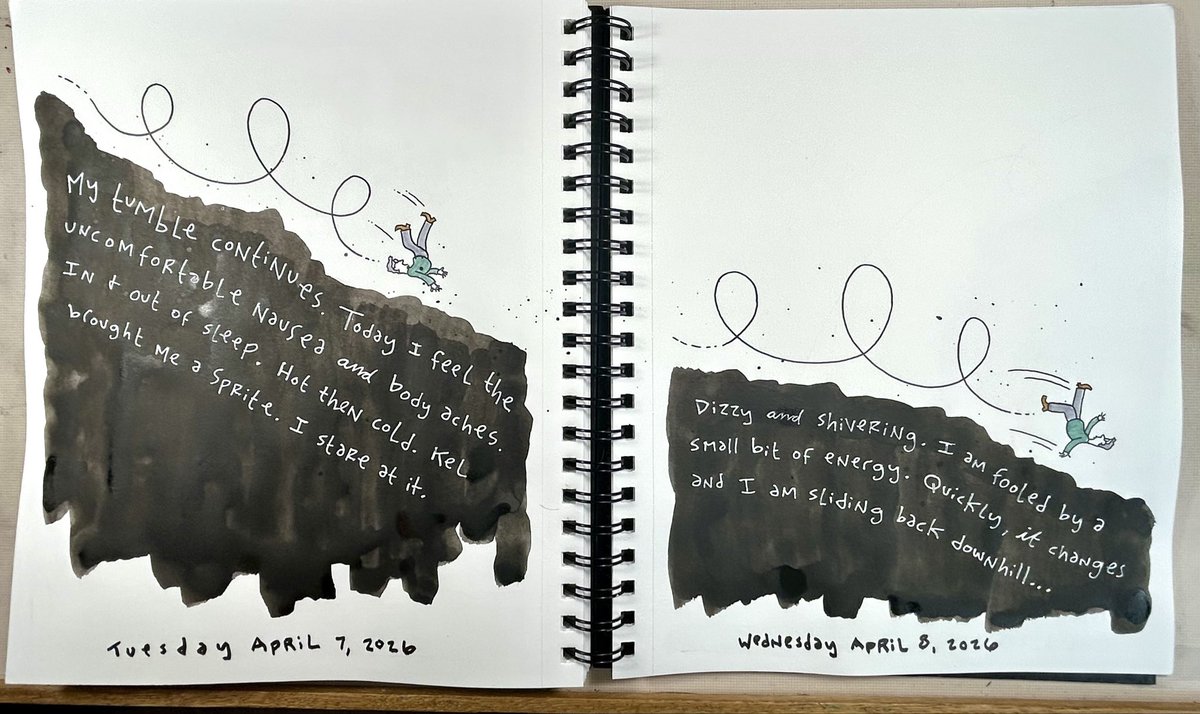 My tumble continues. Today I feel the
uncomfortable nausea and body aches.
In + out of sleep. Hot then cold. Kel
brought me a Sprite. I stare at it.
Tuesday April 7, 2026
Dizzy and shivering. I am fooled by a
small bit of energy. Quickly, it changes
and I am sliding back downhill...
Wednesday April 8, 2026